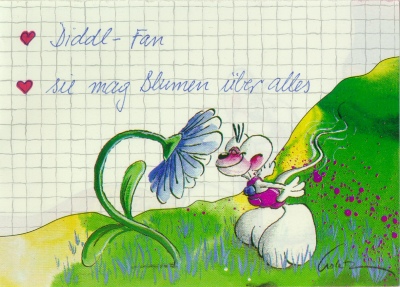 Diddl-Fan
sie mag Blumen über alles